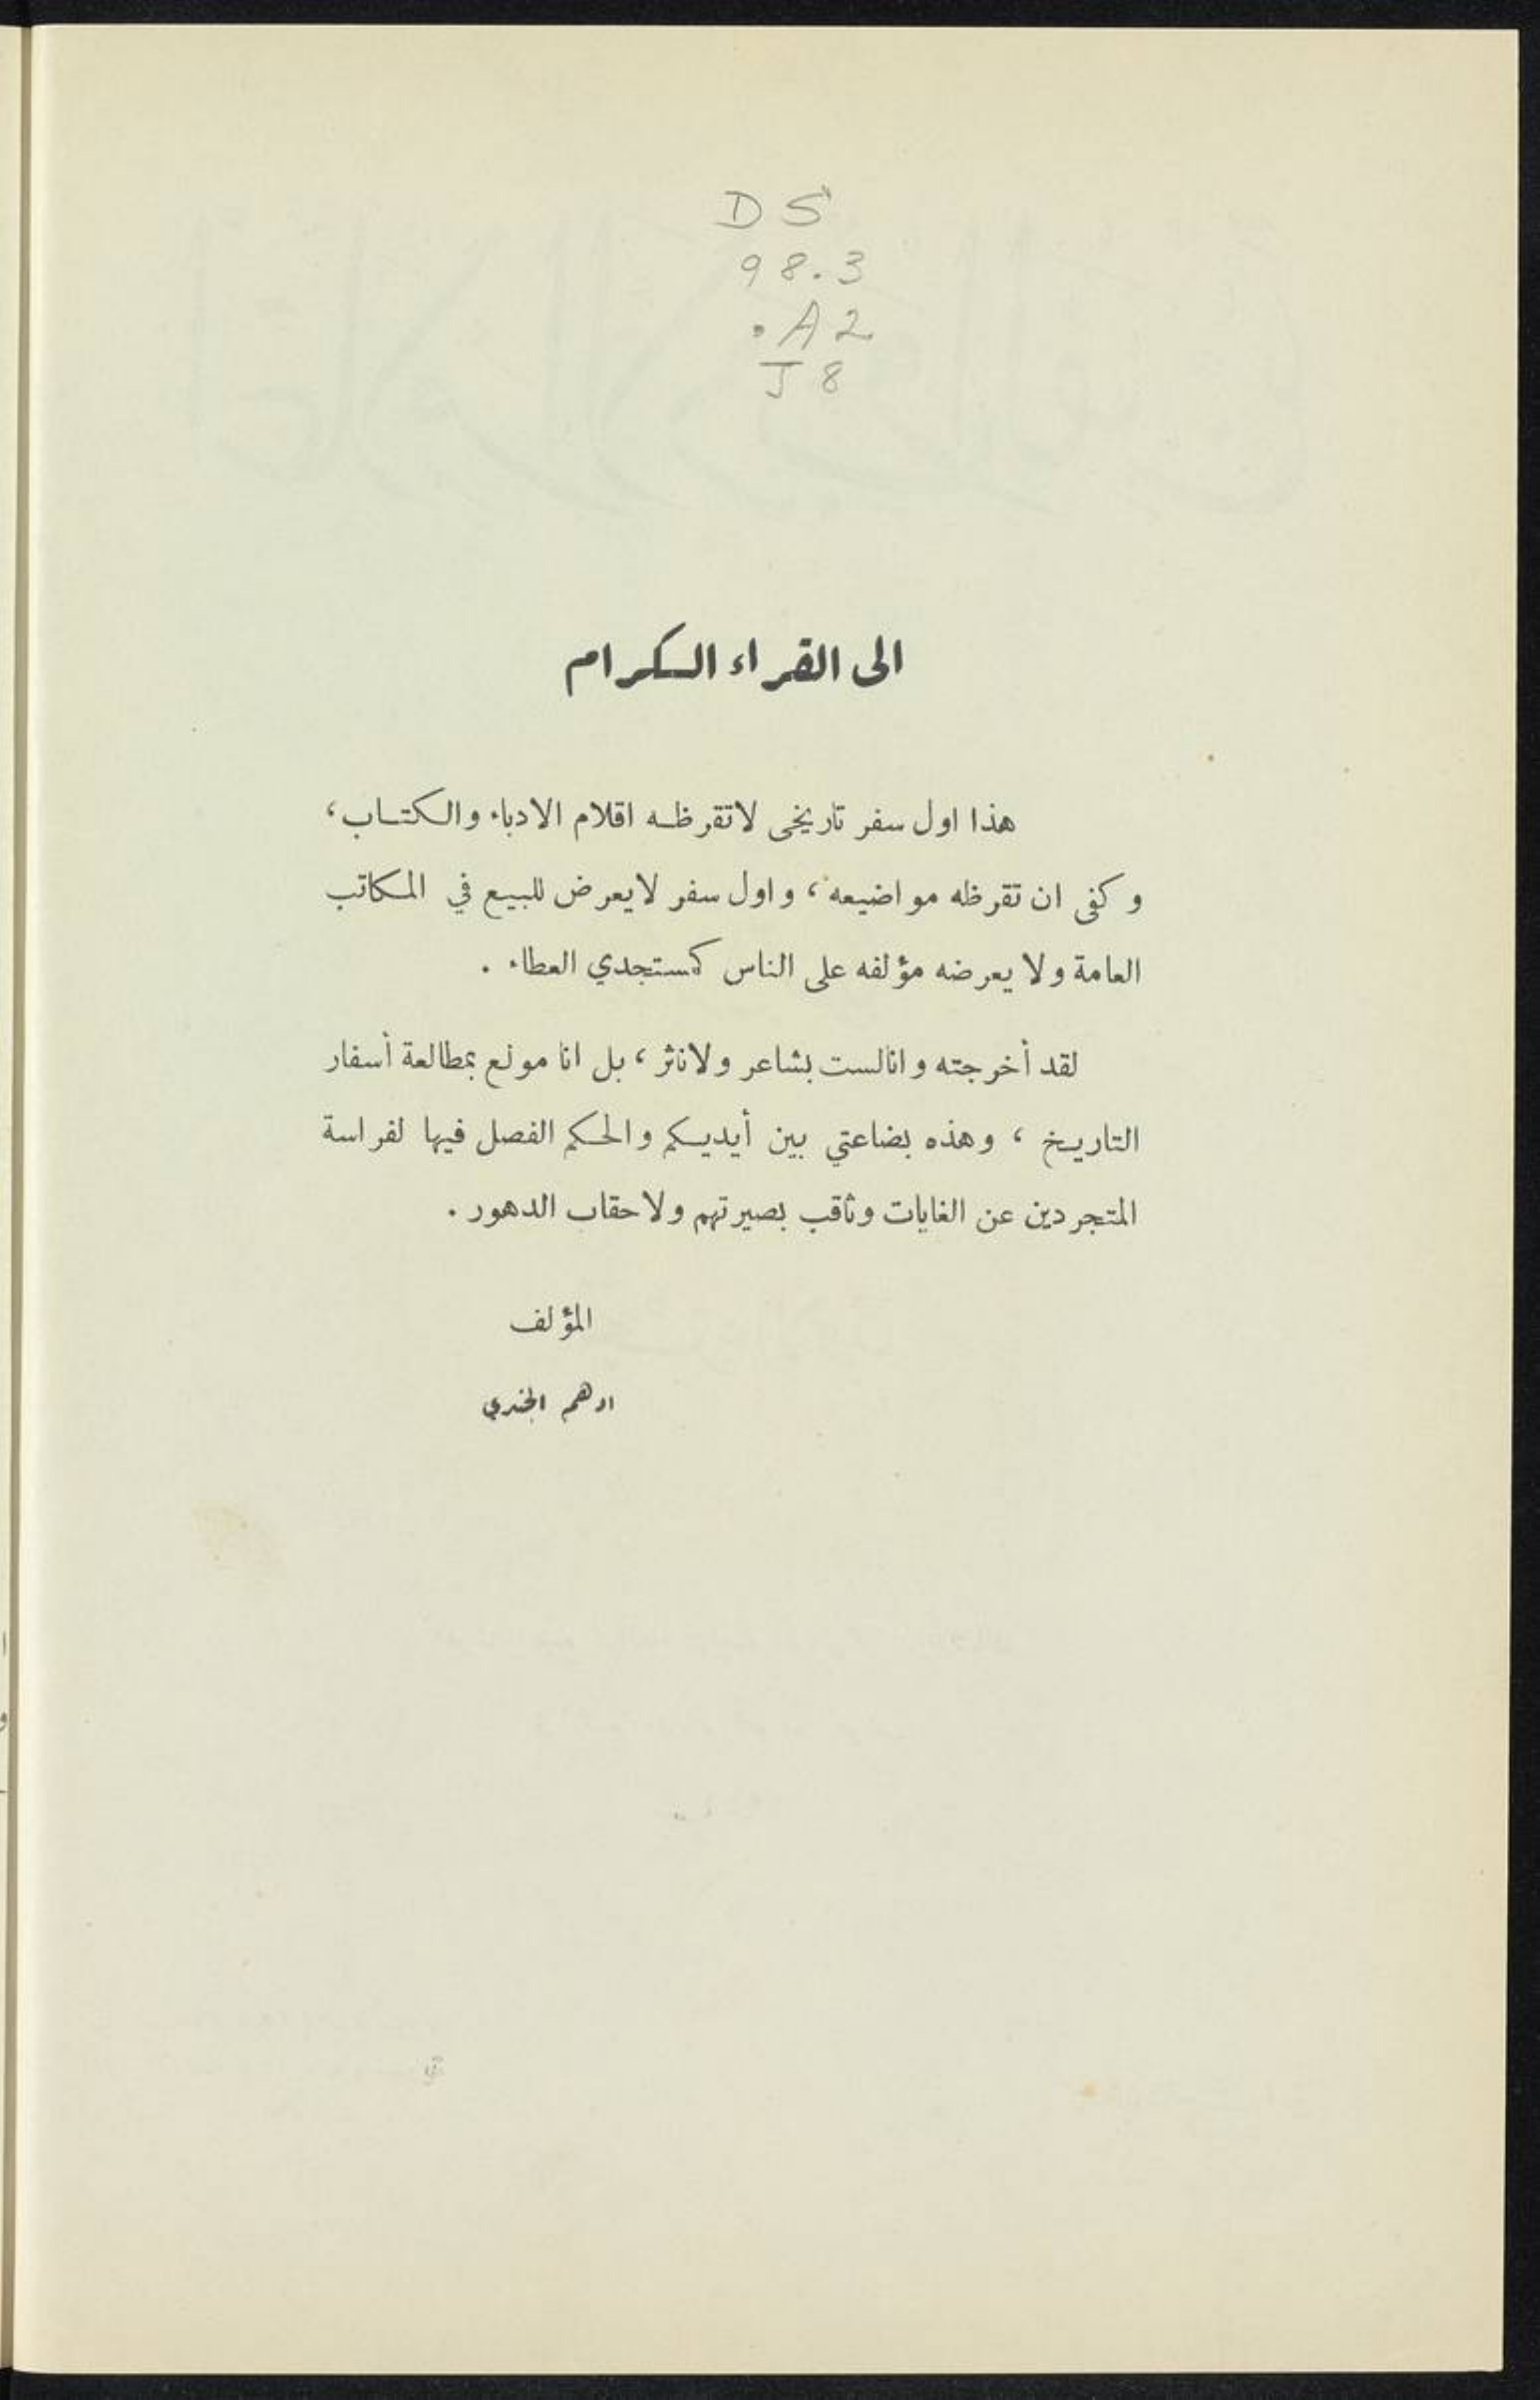 DS
98.3
.A2
J8
الى القراء الكرام
هذا اول سفر تاريخي لاتقرظه اقلام الادباء والكتاب،
وكفى ان تقرظه مواضيعه، واول سفر لايعرض للبيع في المكاتب
العامة ولا يعرضه مؤلفه على الناس كمستجدي العطاء .
لقد أخرجته وانالست بشاعر ولاناثر، بل انا مولع بمطالعة أسفار
التاريخ ، وهذه بضاعتي بين أيديكم والحكم الفصل فيها لفراسة
المتجردين عن الغايات وثاقب بصيرتهم ولاحقاب الدهور .
المؤلف
ادهم الجندي